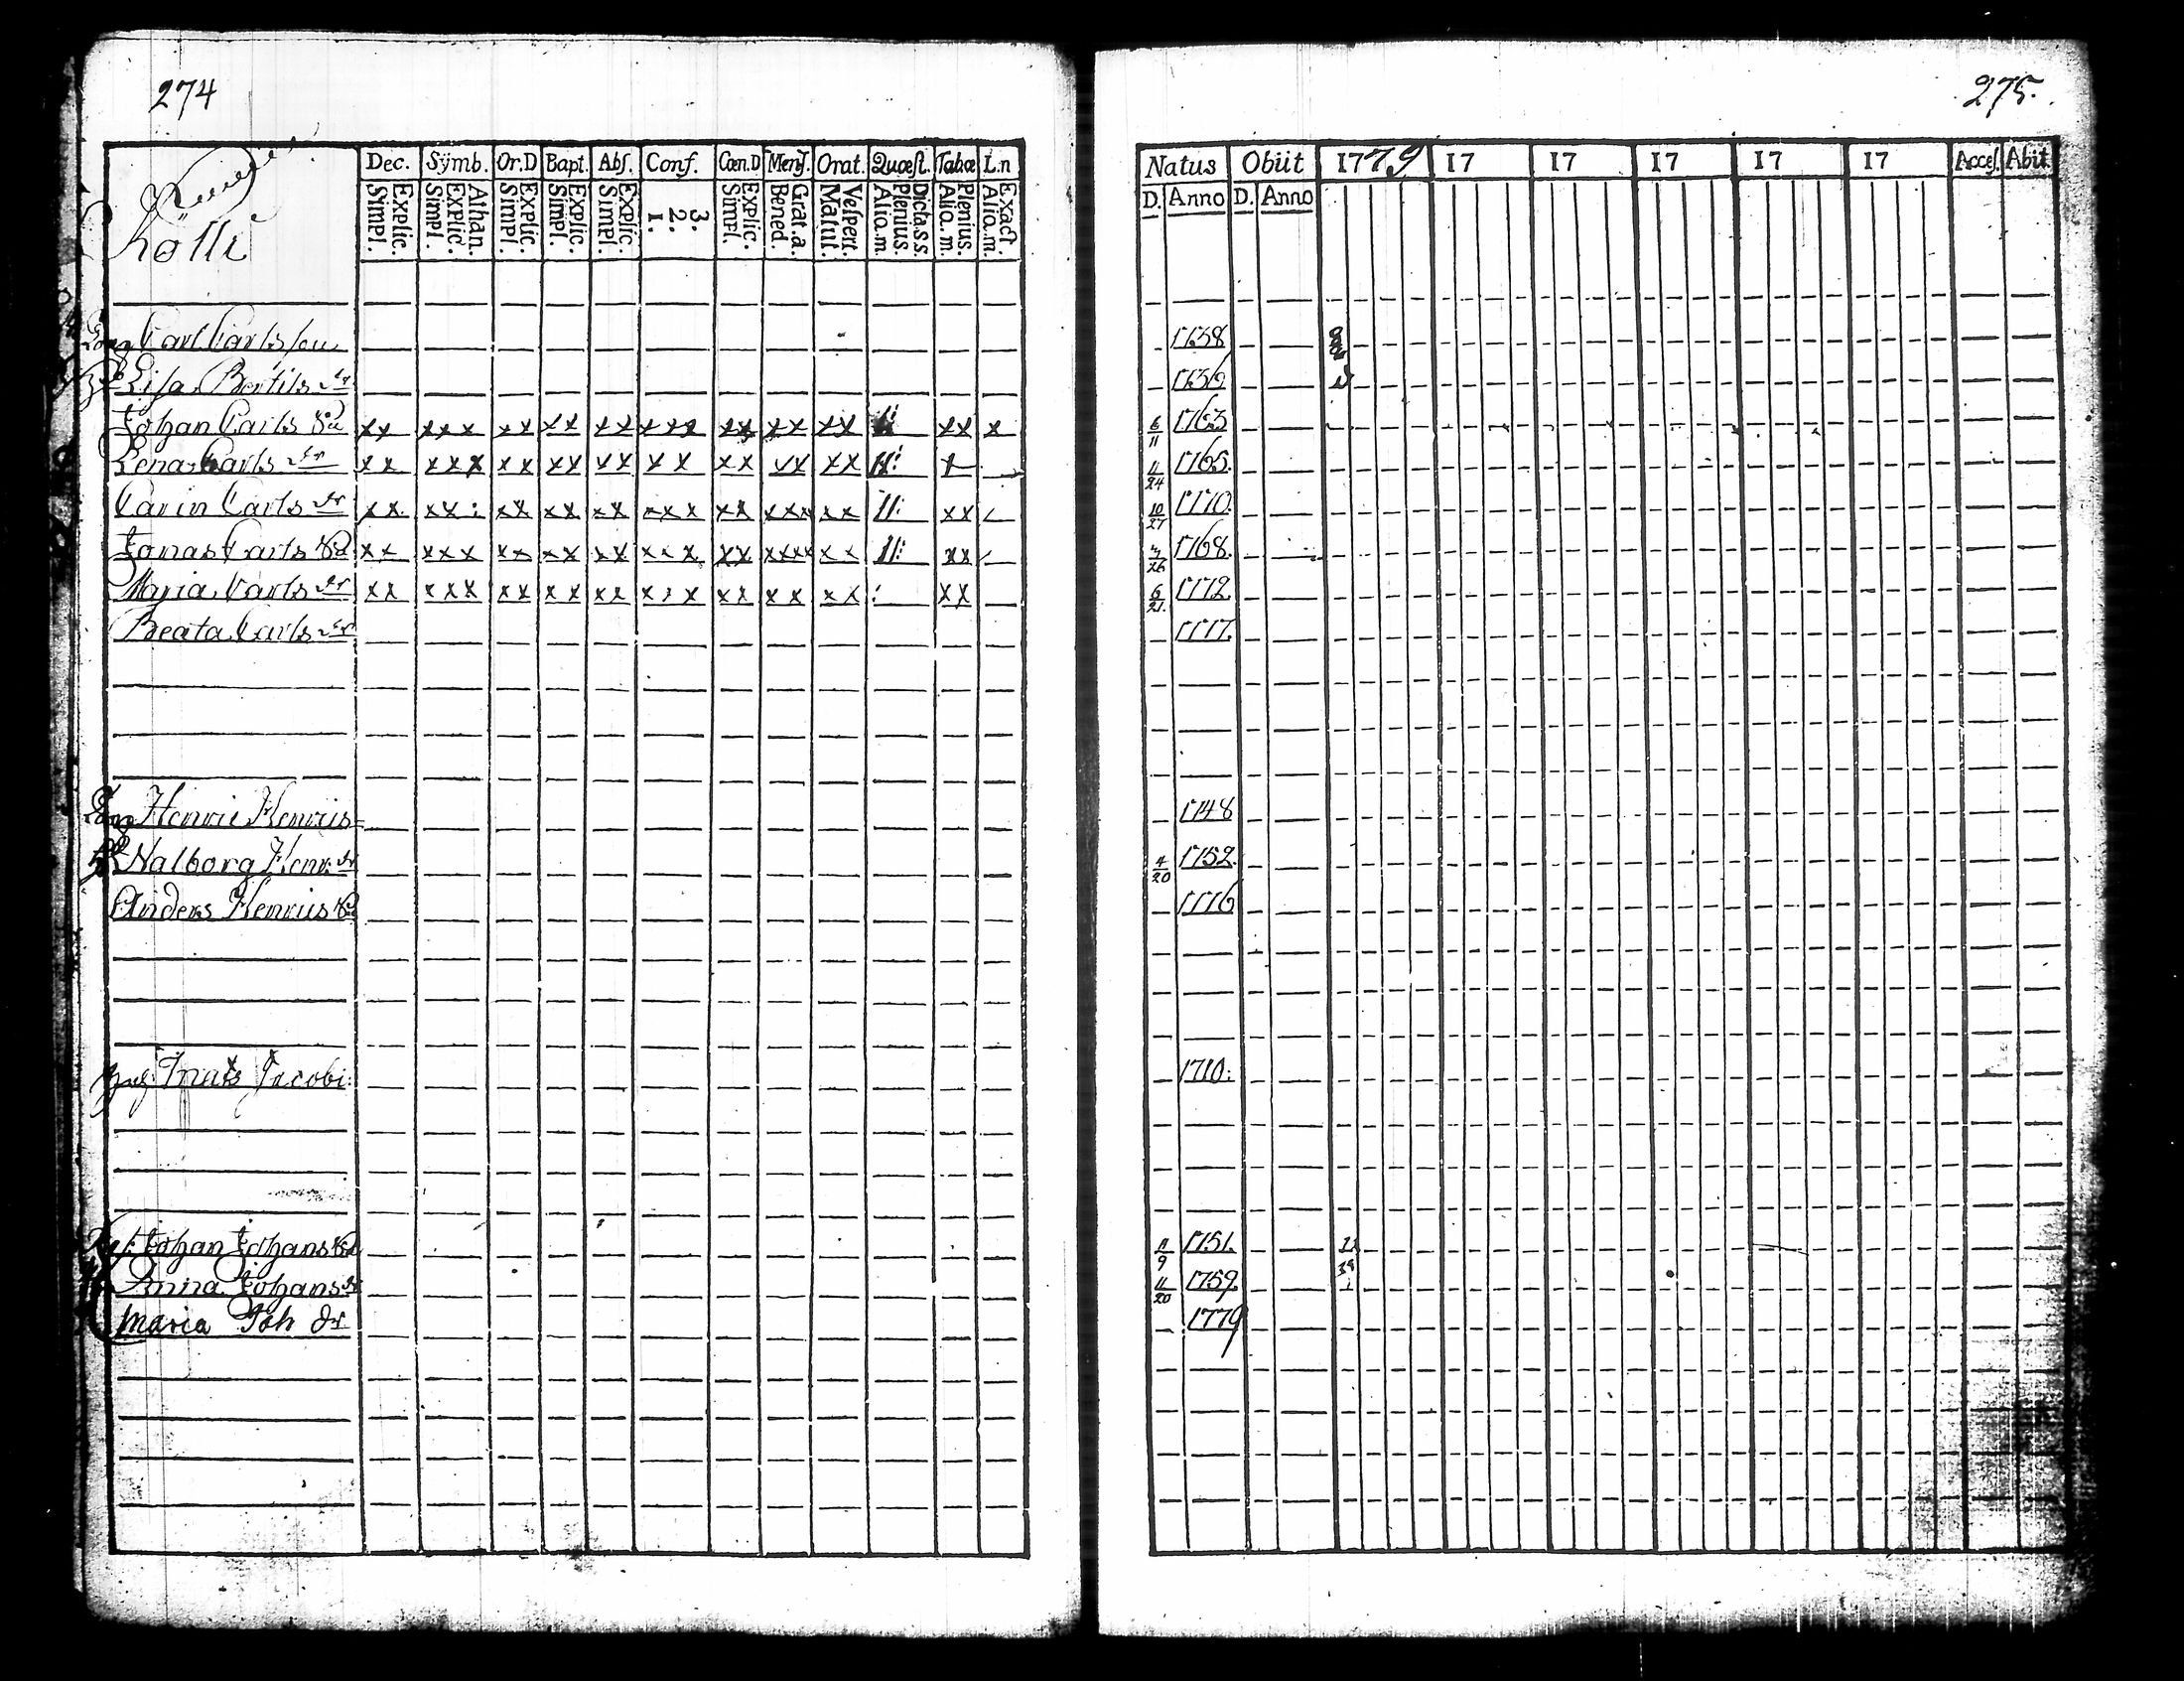 274
Kölli
Dec. Sÿmb. Or.D Bapt. Abſ. Conf. Cœn.D Menſ. Orat. Quœſt. Tabœ L.n
Explic. Sÿmpl. Athan. Explic. Simpl. Explic. Simpl. Explic. Simpl. Explic. Simpl. 3. 2. 1. Explic. Simpl. Grat. a. Bened. Veſpert. Matut. Dicta.s s. Plenius. Alio.m Plenius. Alio.m Exact. Alio.m
Carl Carlsson
Lisa Bertils dr
Johan Carls So xx xxx xx xx xx xxx xx xx xx xx x
Lena Carls dr xx xxx xx xx xx xx xx xx xx
Carin Carls dr xx xx: xx xx xx xxx xx xxx xx 11: xx
Jonas Carls So xx xxx xx xx xx xxx xx xxxx xx 11: xx
Maria Carls dr xx xxx xx xx xx xxx xx xx xx : xx
Beata Carls dr
Henric Henrics
Walborg Henr. dr
Anders Henrics So
Mats Jacobi:
Johan Johans So
Anna Johans dr
Maria Joh dr
275.
Natus Obiit 1779 17 17 17 17 17 Acceſ. Abit
D. Anno D. Anno
1738
1736
6/11 1763
4/24 1765.
10/27 1770.
1768.
6/21. 1772.
1777.
1748
4/20 1752.
1776
1710:
11/9 1751.
11/20 1759.
1779